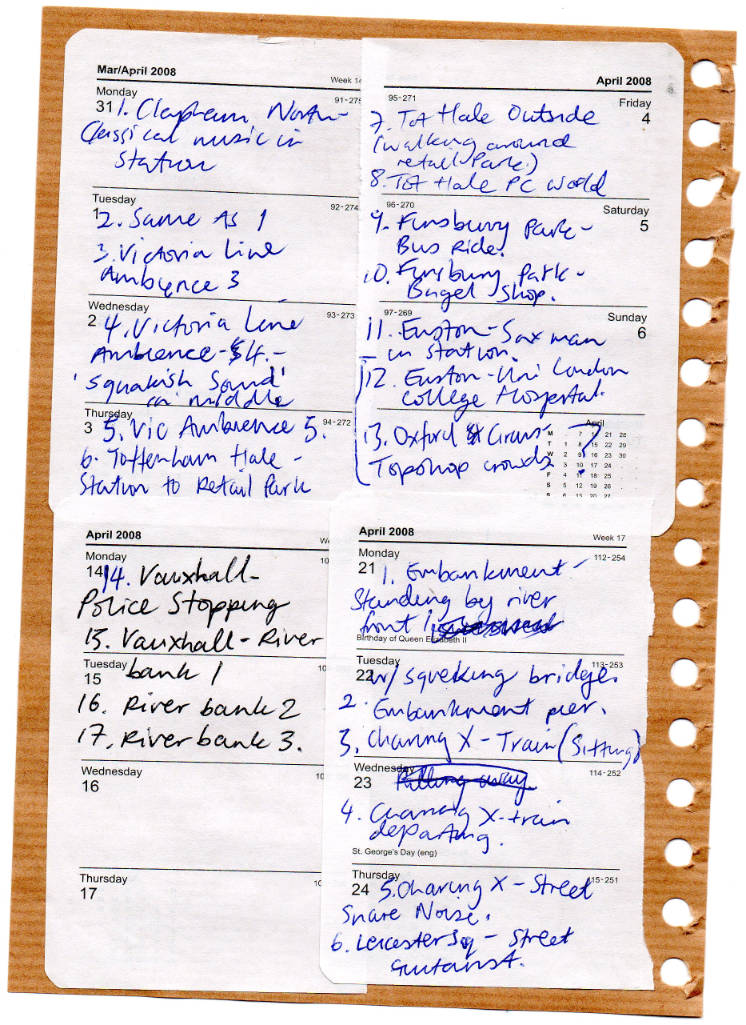 Mar/April 2008
Week 14
Monday
31
91-275
1. Clapham North-
Classical music in
Station
Tuesday
1
92-274
2. Same As 1
3. Victoria Line
Ambience 3
Wednesday
2
93-273
4. Victoria Line
Ambience - 4. -
'Squakish Sound'
in middle
Thursday
3
94-272
5. Vic Ambience 5.
6. Tottenham Hale -
Station to Retail Park
April 2008
95-271
Friday
4
7. Tot Hale Outside
(walking around
retail Park.)
8. Tot Hale PC World
96-270
Saturday
5
9. Finsbury Park -
Bus Ride.
10. Finsbury Park -
Bagel Shop.
97-269
Sunday
6
11. Euston - Sax man
- in station.
12. Euston - Uni London
College Hospital.
13. Oxford Circus - ?
Topshop crowds
April
M 7 14 21 28
T 1 8 15 22 29
W 2 9 16 23 30
T 3 10 17 24
F 4 11 18 25
S 5 12 19 26
S 6 13 20 27
April 2008
Monday
14
14. Vauxhall -
Police Stopping
15. Vauxhall - River
Tuesday
15
bank 1
16. River bank 2
17. River bank 3.
Wednesday
16
Thursday
17
April 2008
Week 17
Monday
21
112-254
1. Embankment -
Standing by river
front
Birthday of Queen Elizabeth II
Tuesday
22
113-253
w/ squeking bridge.
2. Embankment pier.
3. Charing X - Train (Sitting)
Wednesday
23
114-252
4. Charing X - train
departing.
St. George's Day (eng)
Thursday
24
115-251
5. Charing X - Street
Snare Noise.
6. Leicester Sq - Street
Guitarist.